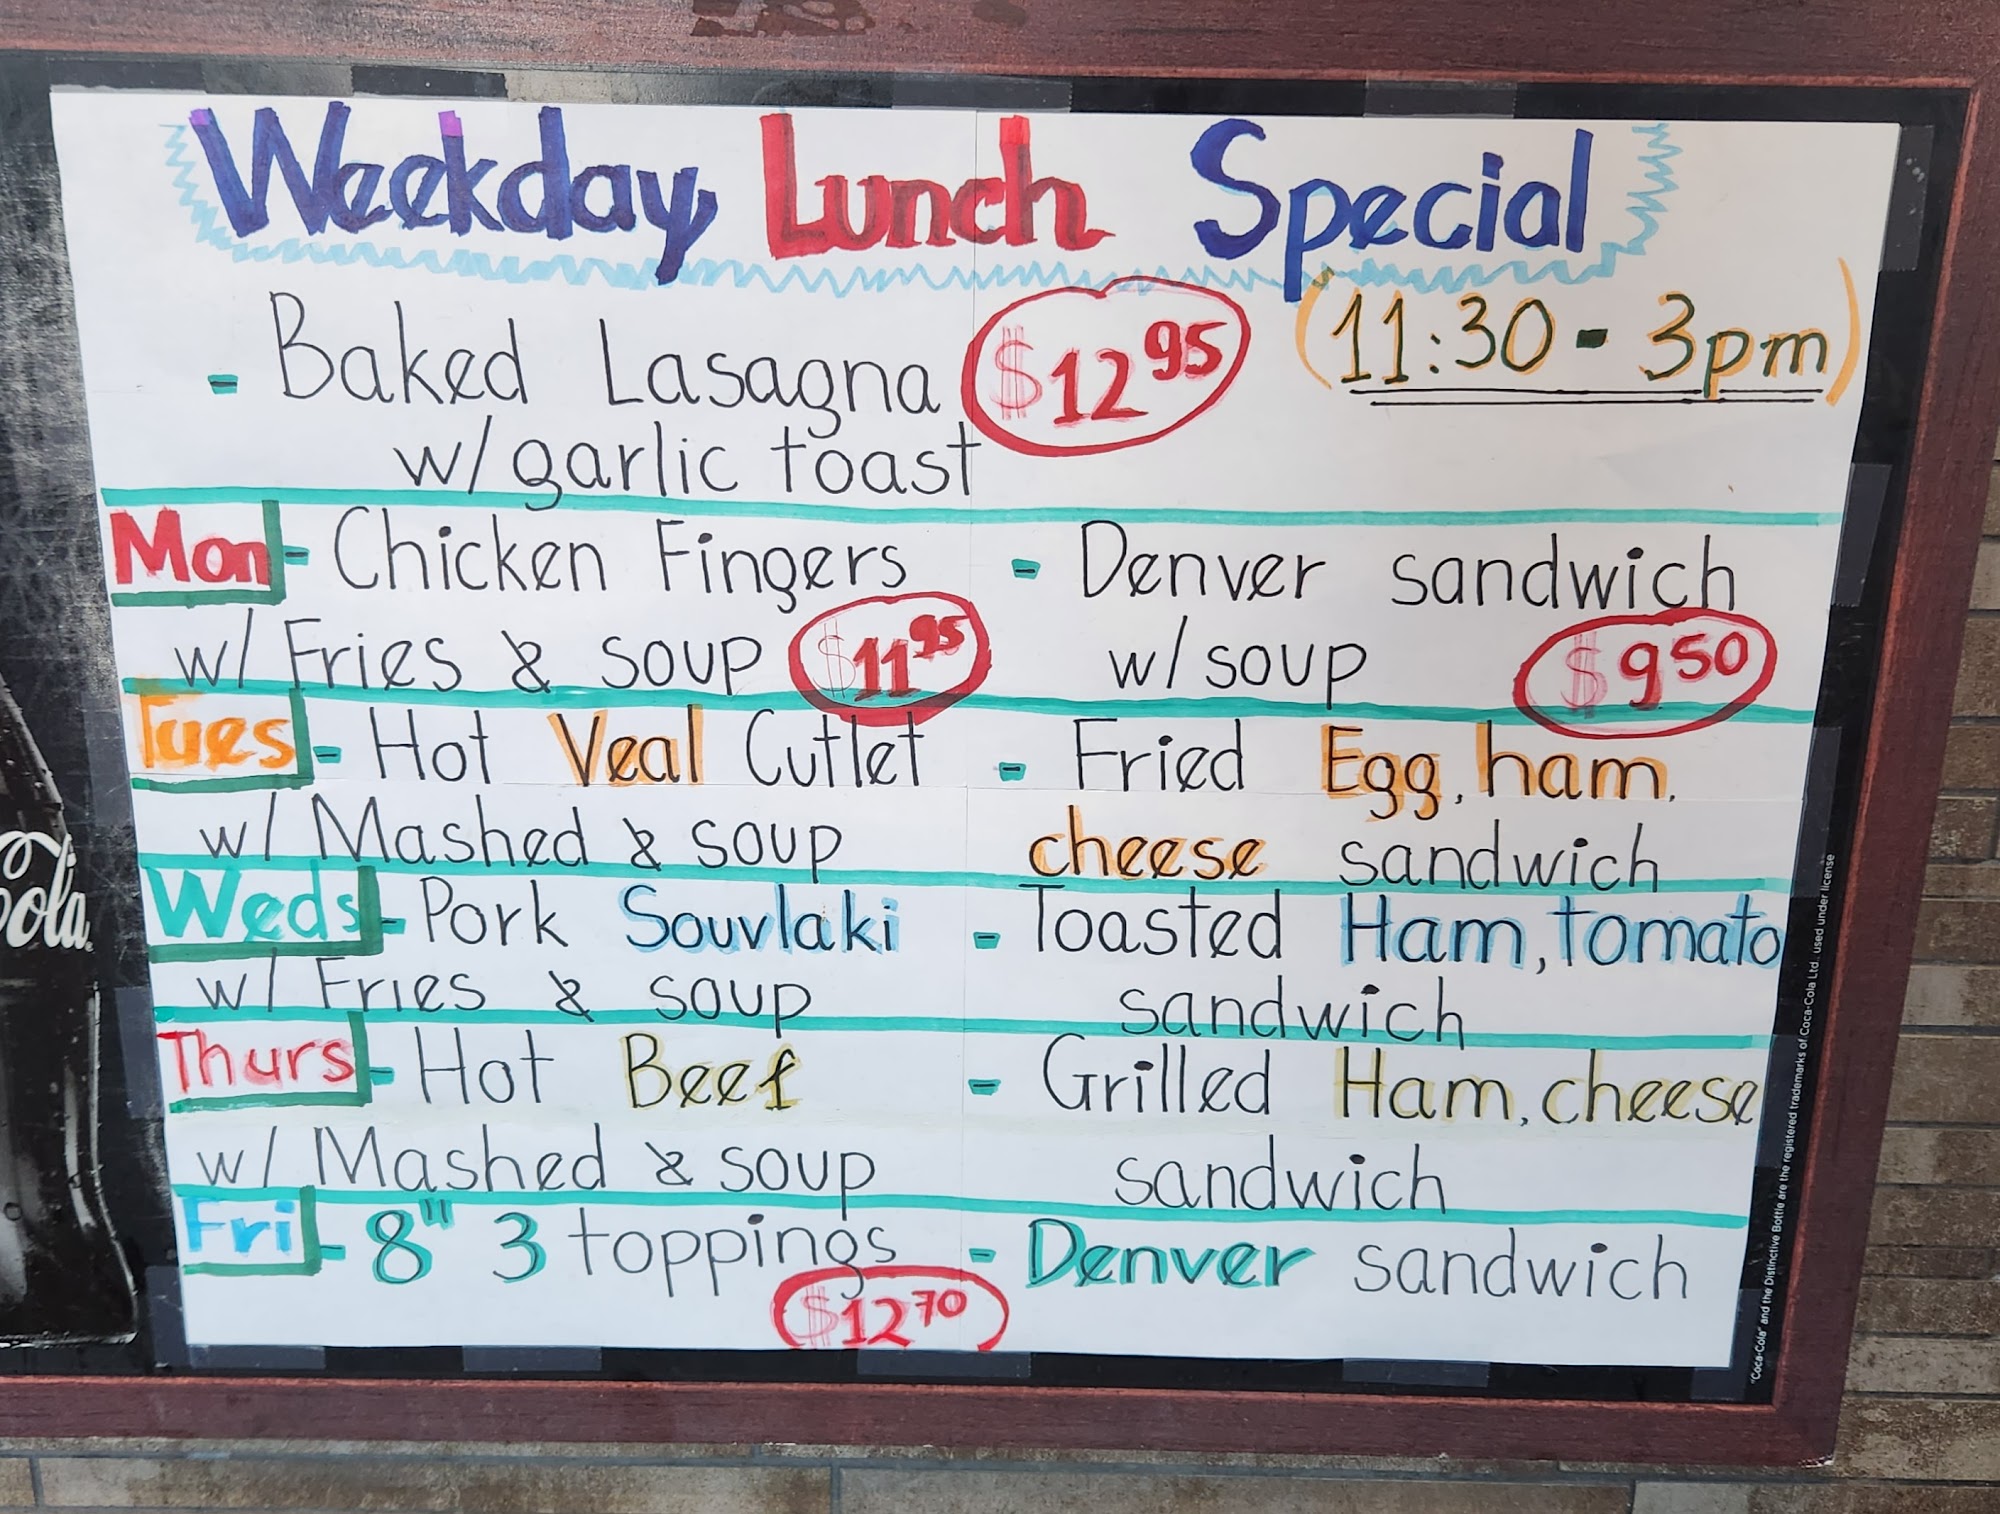 Weekday Lunch Special
(11:30 - 3pm)
- Baked Lasagna $12 95
w/ garlic toast
Mon - Chicken Fingers
w/ Fries & soup $11 95
- Denver sandwich
w/ soup $9 50
Tues - Hot Veal Cutlet
w/ Mashed & soup
- Fried Egg, ham,
cheese sandwich
Weds - Pork Souvlaki
w/ Fries & soup
- Toasted Ham, tomato
sandwich
Thurs - Hot Beef
w/ Mashed & soup
- Grilled Ham, cheese
sandwich
Fri - 8" 3 toppings
$12 70
- Denver sandwich
Cola
"Coca-Cola" and the Distinctive Bottle are the registered trademarks of Coca-Cola Ltd. used under license